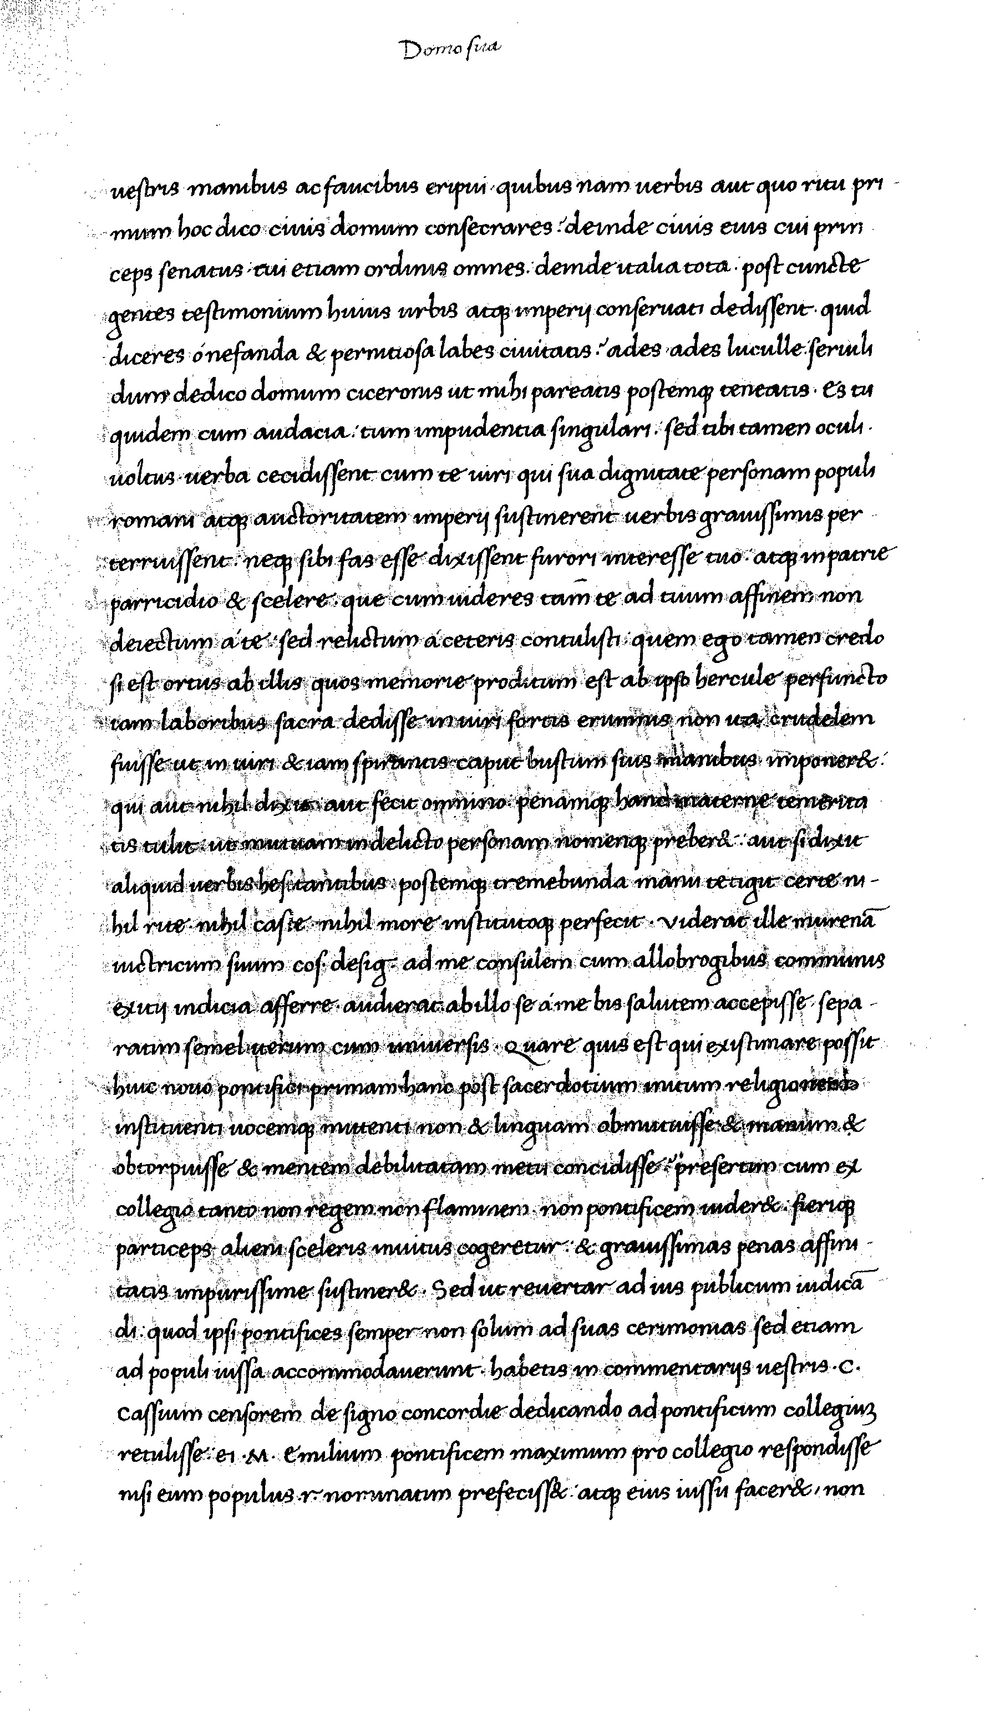 Domo sua
uestris manibus ac faucibus eripui · quibus nam uerbis aut quo ritu pri
mum hoc dico ciuis domum consecrares ? deinde ciuis eius cui prin
ceps senatus · tui etiam ordinis omnes . deinde italia tota . post cuncte
gentes testimonium huius urbis atq; imperij conseruati dedissent · quid
diceres o nefanda & pernitiosa labes ciuitatis ? ades ades luculle seruili
dum dedico domum ciceronis ut mihi pareatis postemq; teneatis . Es tu
quidem cum audacia : tum impudentia singulari : sed tibi tamen oculi .
uoltus · uerba cecidissent cum te uiri qui sua dignitate personam populi
romani atq; auctoritatem imperij sustinerent uerbis grauissimis per
terruissent : neq; sibi fas esse dixissent furori interesse tuo . atq; in patrie
parricidio & scelere · que cum uideres tam̄ te ad tuum affinem non
deiectum a te sed relictum a ceteris contulisti quem ego tamen credo
si est ortus ab illis quos memorie proditum est ab ipso hercule perfuncto
iam laboribus sacra dedisse in uiri fortis erumnis non ita crudelem
fuisse ut in uiri & iam spirantis caput bustum suis manibus imponer& :
qui aut nihil dixit aut fecit omnino penamq; hanc materne temerita
tis tulit ut mutuam in delicto personam nomenq; preber& : aut si dixit
aliquid uerbis hesitantibus postemq; tremebunda manu tetigit certe ni -
hil rite nihil caste nihil more institutoq; perfecit . Viderat ille murenā
uictricum suum cos . desig . ad me consulem cum allobrogibus communis
exitij indicia afferre . audierat ab illo se a me bis salutem accepisse . sepa -
ratim semel iterum cum uniuersis . Quare quis est qui existimare possit
huic nouo pontifici primam hanc post sacerdotium initum religionem
instituenti uocemq; mittenti non & linguam obmutuisse & manum &
obtorpuisse & mentem debilitatam metu concidisse ? presertim cum ex
collegio tanto non regem non flaminem . non pontificem uider& . fieriq;
particeps alieni sceleris inuitus cogeretur : & grauissimas penas affini -
tatis impurissime sustiner& . Sed ut reuertar ad ius publicum iudicā
di : quod ipsi pontifices semper non solum ad suas cerimonias sed etiam
ad populi iussa accommodauerunt . habetis in commentarijs uestris . C .
Cassium censorem de signo concordie dedicando ad pontificum collegiuȝ
retulisse . ei . M . Emilium pontificem maximum pro collegio respondisse
nisi eum populus r . nominatim prefeciss& . atq; eius iussu facer& , non